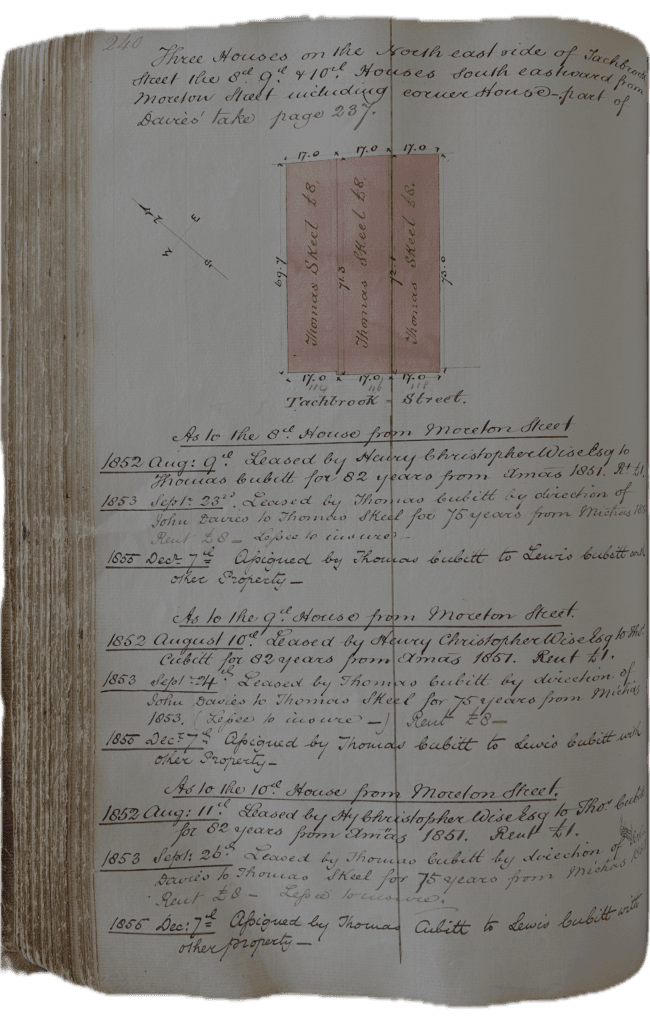 240
Three Houses on the North east side of Tachbrook
Street the 8th 9th & 10th Houses South eastward from
Moreton Street including corner House - part of
Davies' take page 237.
17.0 17.0 17.0
N E W S
Thomas Skeel £8.
Thomas Skeel £8.
Thomas Skeel £8.
69.7 71.3 72.1 73.0
17.0 17.0 17.0
114 116 118
Tachbrook - Street.
As to the 8th House from Moreton Street
1852 Aug: 9th Leased by Henry Christopher Wise Esq to
Thomas Cubitt for 82 years from Xmas 1851. Rt £1.
1853 Septr 23rd. Leased by Thomas Cubitt by direction of
John Davies to Thomas Skeel for 75 years from Michas
Rent £8 - Lessee to insure -
1855 Decr 7th Assigned by Thomas Cubitt to Lewis Cubitt with
other Property -
As to the 9th House from Moreton Street.
1852 August 10th Leased by Henry Christopher Wise Esq to Thos
Cubitt for 82 years from Xmas 1851. Rent £1.
1853 Septr 24th Leased by Thomas Cubitt by direction of
John Davies to Thomas Skeel for 75 years from Michas
1853. (Lessee to insure -) Rent £8 -
1855 Decr 7th Assigned by Thomas Cubitt to Lewis Cubitt with
other Property -
As to the 10th House from Moreton Street.
1852 Aug: 11th Leased by Hy Christopher Wise Esq to Thos Cubitt
for 82 years from Xmas 1851. Rent £1.
1853 Septr 26th Leased by Thomas Cubitt by direction of
Davies to Thomas Skeel for 75 years from Michas
Rent £8 - Lessee to insure.
1855 Dec: 7th Assigned by Thomas Cubitt to Lewis Cubitt with
other property -